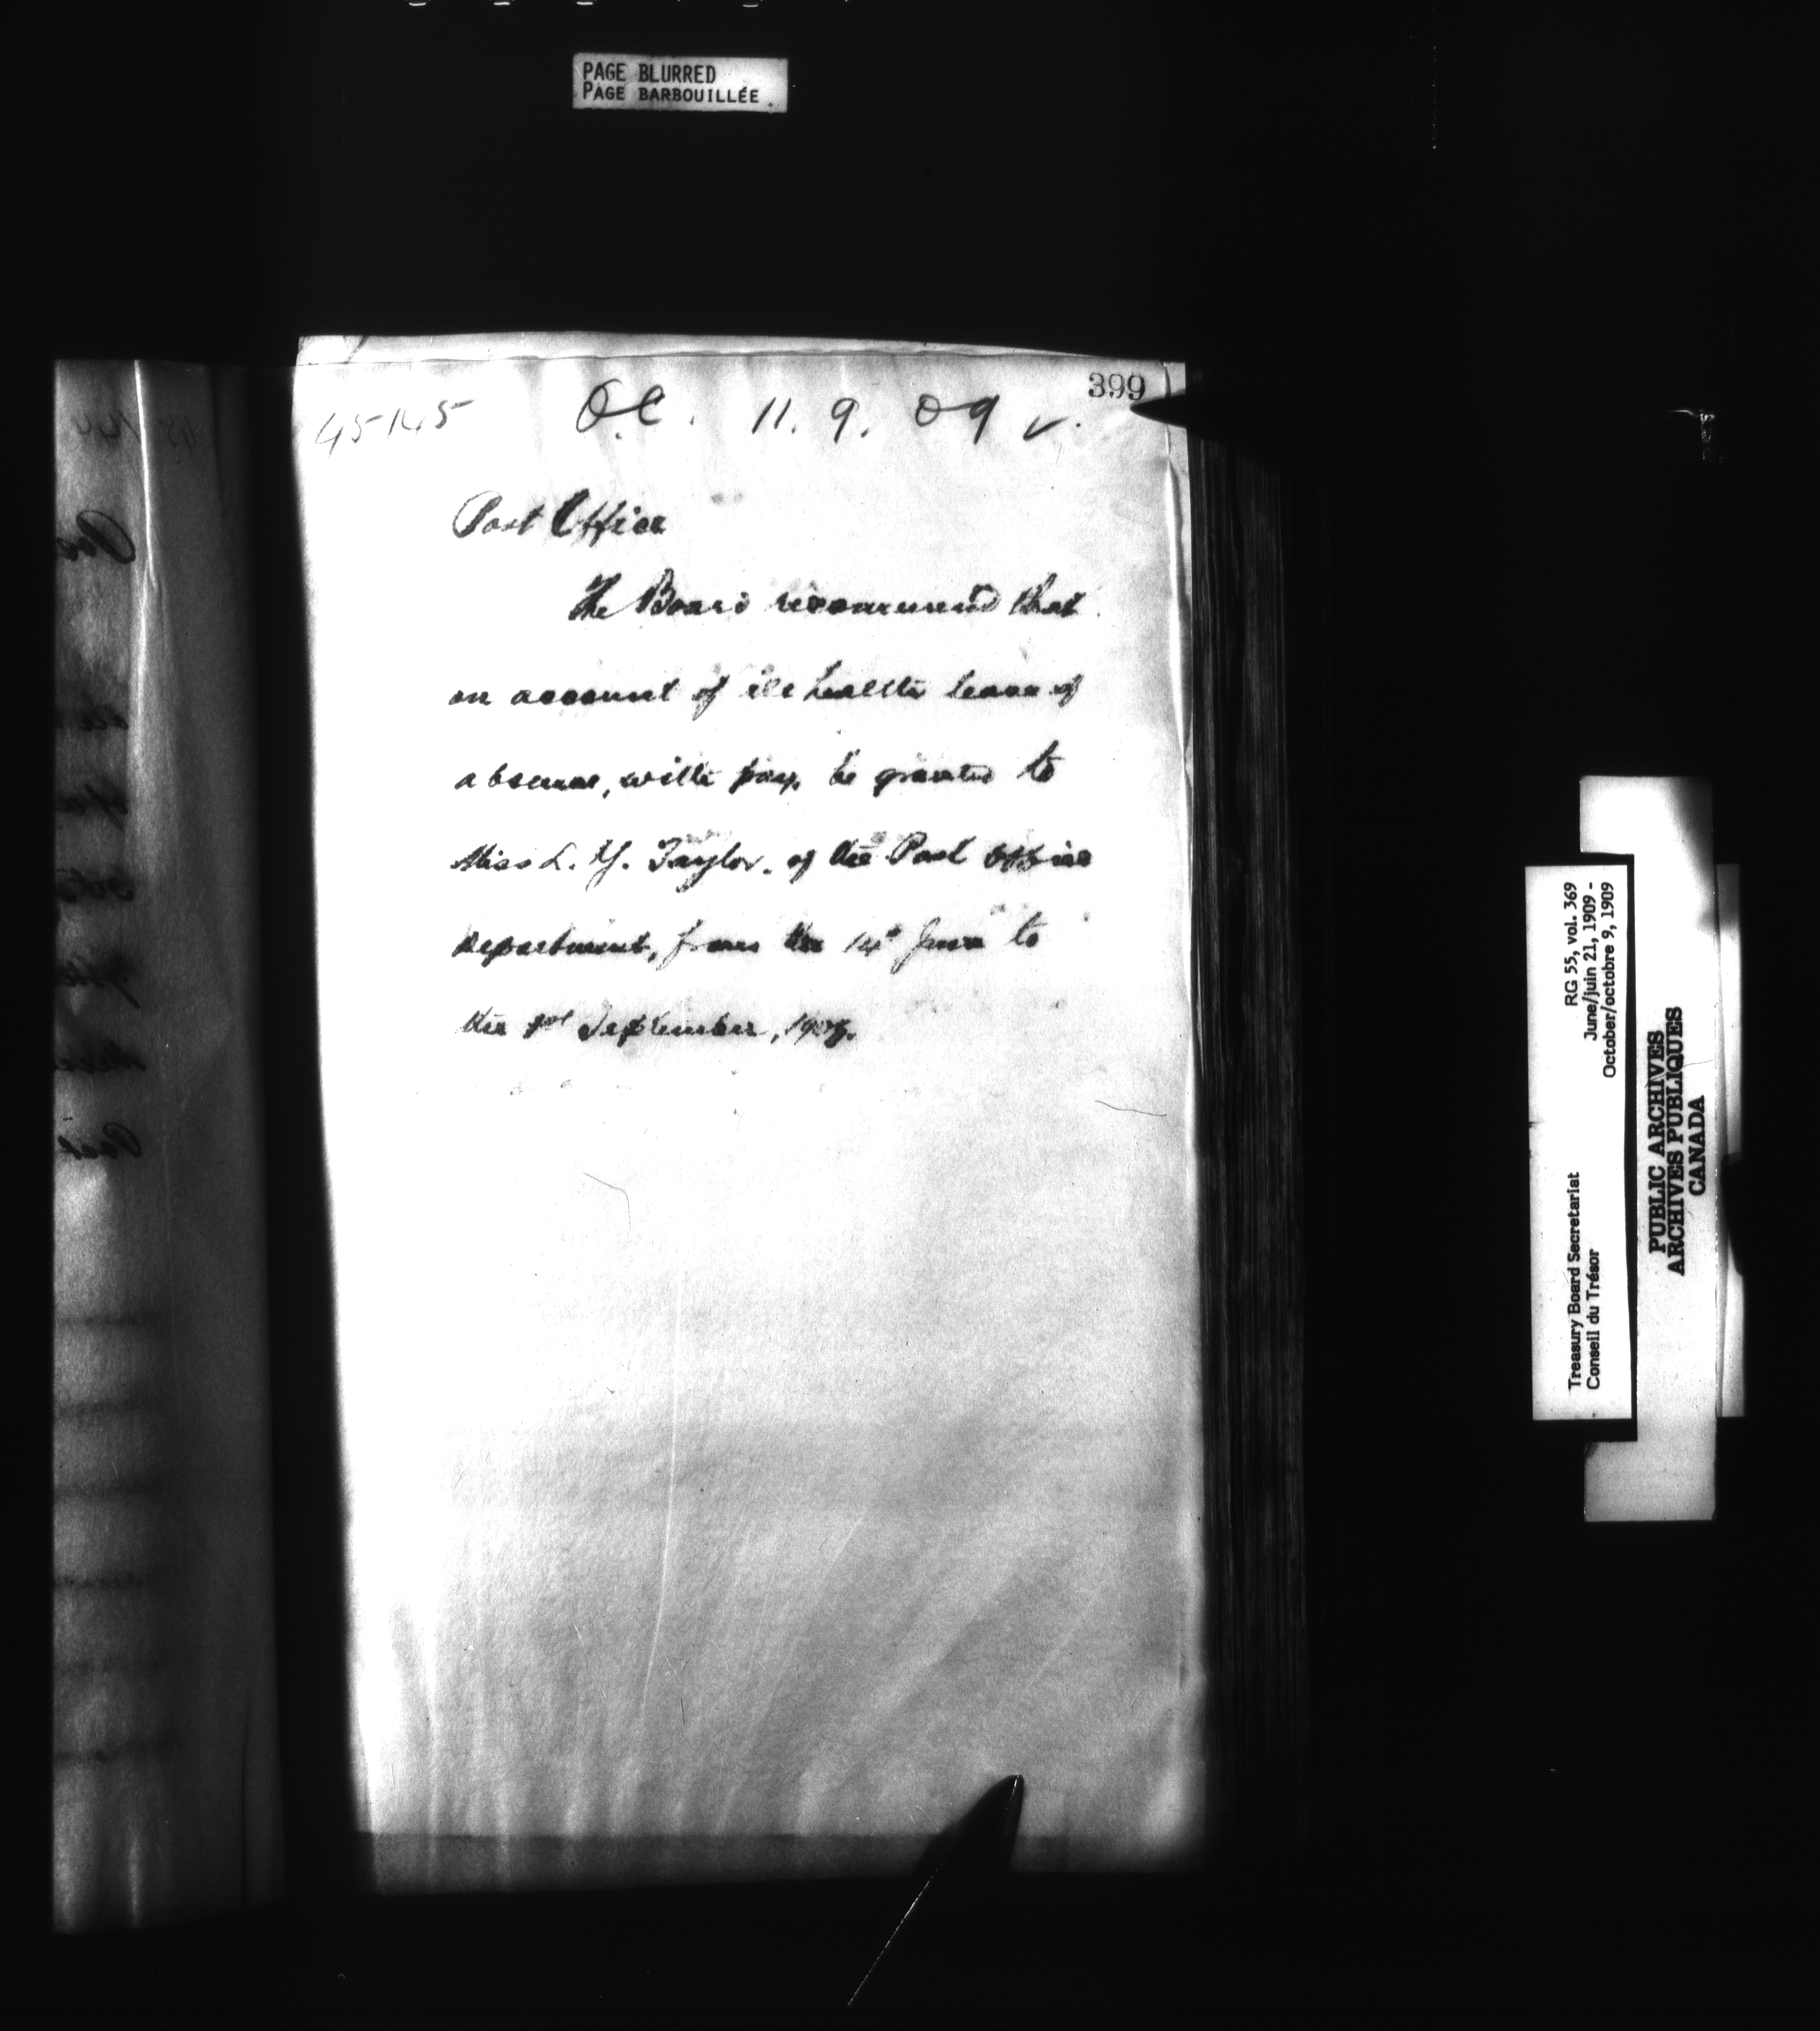 PAGE BLURRED
PAGE BARBOUILLÉE
399
45145 O.C. 11. 9. 09
Post Office
The Board recommend that
on account of ill health leave of
absence, with pay, be granted to
Miss L. Y. Taylor, of the Post Office
department, from the June to
the 1st September, 1909.
RG 55, vol. 369
June/juin 21, 1909 -
October/octobre 9, 1909
Treasury Board Secretariat
Conseil du Trésor
PUBLIC ARCHIVES
ARCHIVES PUBLIQUES
CANADA